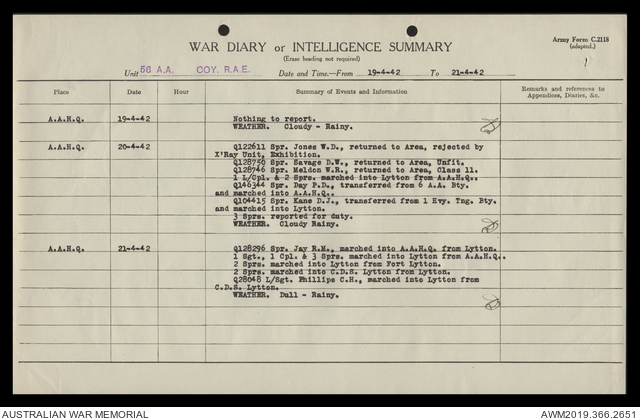 Army Form C.2118
(adapted.)
WAR DIARY or INTELLIGENCE SUMMARY
(Erase heading not required)
1
Unit 56 A.A. COY. R.A.E. Date and Time.—From 19-4-42 To 21-4-42
Place Date Hour Summary of Events and Information Remarks and references to
Appendices, Diaries, &c.
A.A.H.Q. 19-4-42 Nothing to report.
WEATHER. Cloudy - Rainy.
A.A.H.Q. 20-4-42 Q122611 Spr. Jones W.D., returned to Area, rejected by
X'Ray Unit, Exhibition.
Q128750 Spr. Savage D.W., returned to Area, Unfit.
Q128746 Spr. Meldon W.R., returned to Area, Class 11.
1 L/Cpl. & 2 Sprs. marched into Lytton from A.A.H.Q..
Q146344 Spr. Day P.D., transferred from 6 A.A. Bty.
and marched into A.A.H.Q..
Q104415 Spr. Kane D.J., transferred from 1 Hvy. Tng. Bty.
and marched into Lytton.
3 Sprs. reported for duty.
WEATHER. Cloudy Rainy.
A.A.H.Q. 21-4-42 Q128296 Spr. Jay R.M., marched into A.A.H.Q. from Lytton.
1 Sgt., 1 Cpl. & 3 Sprs. marched into Lytton from A.A.H.Q..
2 Sprs. marched into Lytton from Fort Lytton.
2 Sprs. marched into C.D.S. Lytton from Lytton.
Q28048 L/Sgt. Phillips C.H., marched into Lytton from
C.D.S. Lytton.
WEATHER. Dull - Rainy.
AUSTRALIAN WAR MEMORIAL AWM2019.366.2651